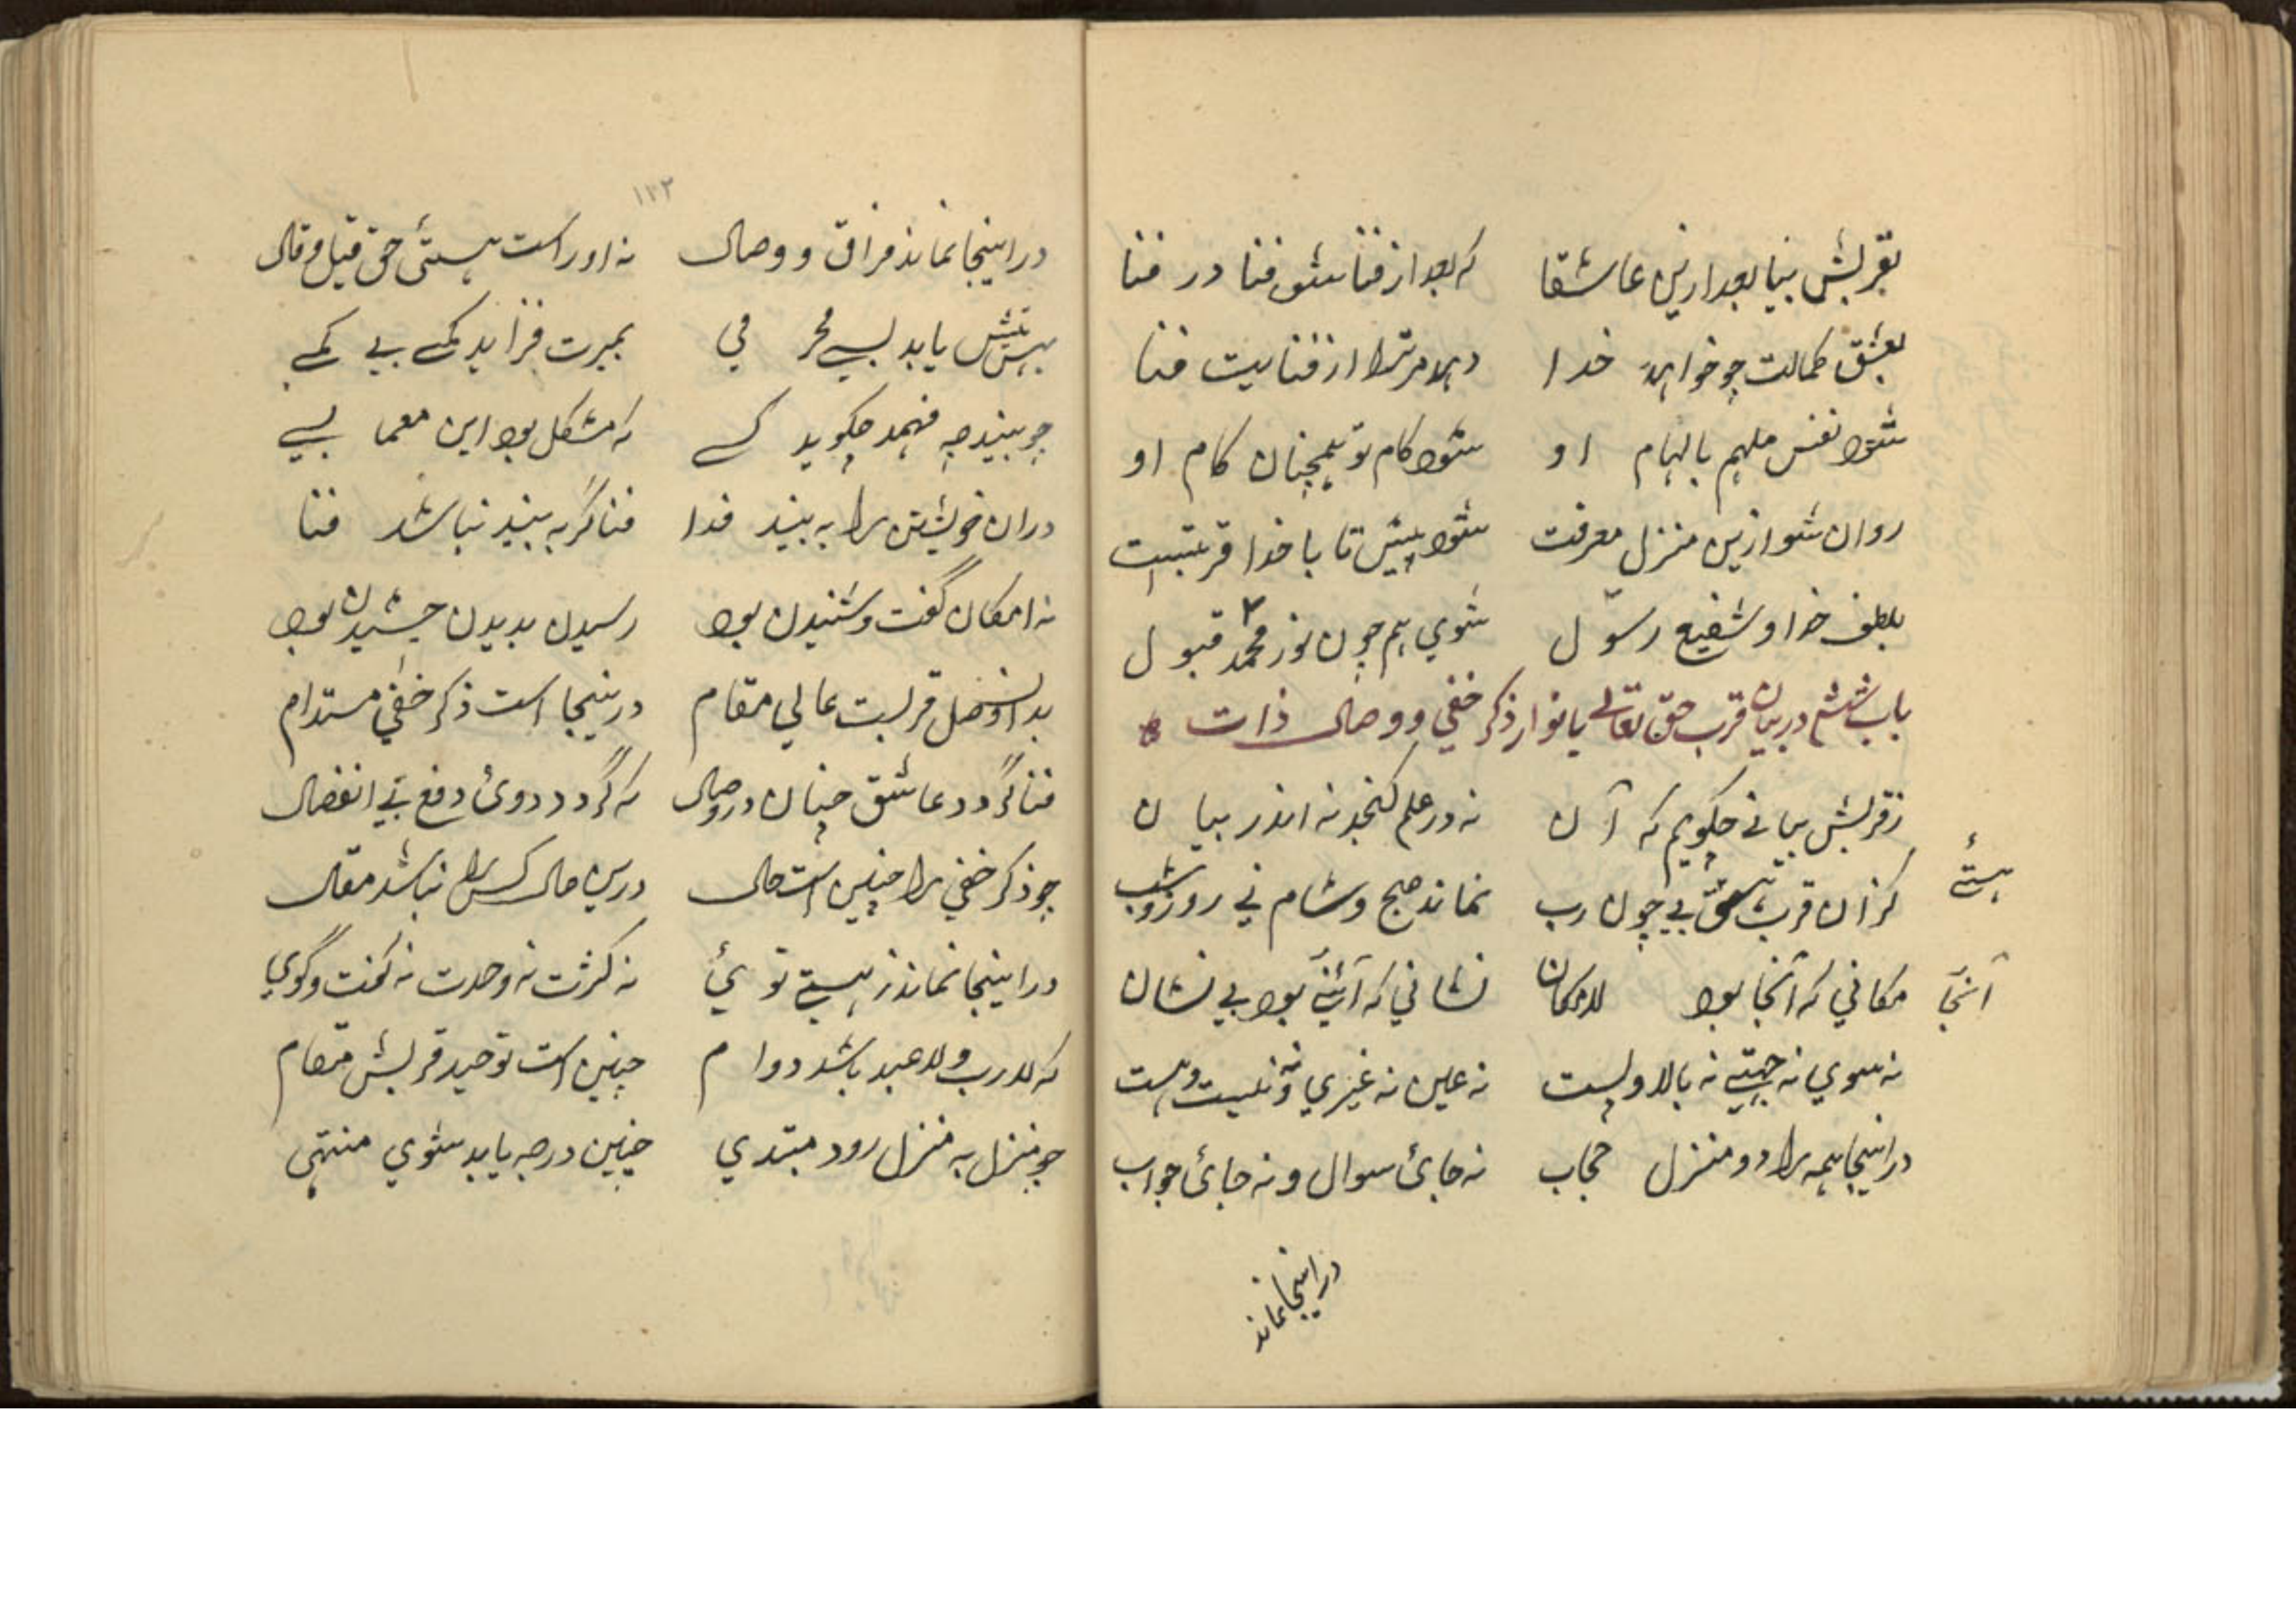 بقربش بیا بعد ازین عاشقا که بعد از فنا شو فنا در فنا
بعشق کمالت چو خواهد خدا دهد مر ترا از فنایت فنا
شود نفس ملهم بالهام او شود کام تو همچنان کام او
روان شو ازین منزل معرفت شود پیش تا با خدا قربتیت
بلطف خدا و شفیع رسول شوی هم چون نور محمد قبول
باب ششم در بیان قرب حق تعالی بانوار ذکر خفی و وصال ذات
زقربش بیانی چگویم که آن نه در علم گنجد نه اندر بیان
کزان قرب بی چون رب نماند صبح و شام نی روز و شب
هستئ
مکانی که آنجا بود لامکان نشانی که آنجا بود بی نشان
آنجا
نه سوی نه جهتی نه بالا و پست نه عین نه غیری و نه نیست و هست
در اینجا همه را دو منزل حجاب نه جائ سوال و نه جائ جواب
در اینجا نماند
۱۳۲
در اینجا نماند فراق و وصال نه او راست هستئ حق قیل و قال
یابد بسی محرمی بمیرت فزاید کمی بی کمی
چو بیند چه فهمد چگوید کسی که مشکل بود این معما بسی
دران خویشتن را به بیند فدا فنا گر به بیند نباشد فنا
نه امکان گفت و شنیدن بود رسیدن بدیدن چشیدن بود
بدان وصل قربست عالی مقام درینجا است ذکر خفی مستدام
فنا گردد عاشق چنان در وصال که گردد دوئ دفع بی انفصال
چو ذکر خفی را چنین است حال درین حال کس را نباشد مقال
در اینجا نماند ز هستی توئ نه کثرت نه وحدت نه گفت و گوی
که لا رب و لا عبد باشد دوام چنین است توحید قربش مقام
چو منزل به منزل رود مبتدی چنین درجه یابد شوی منتهی